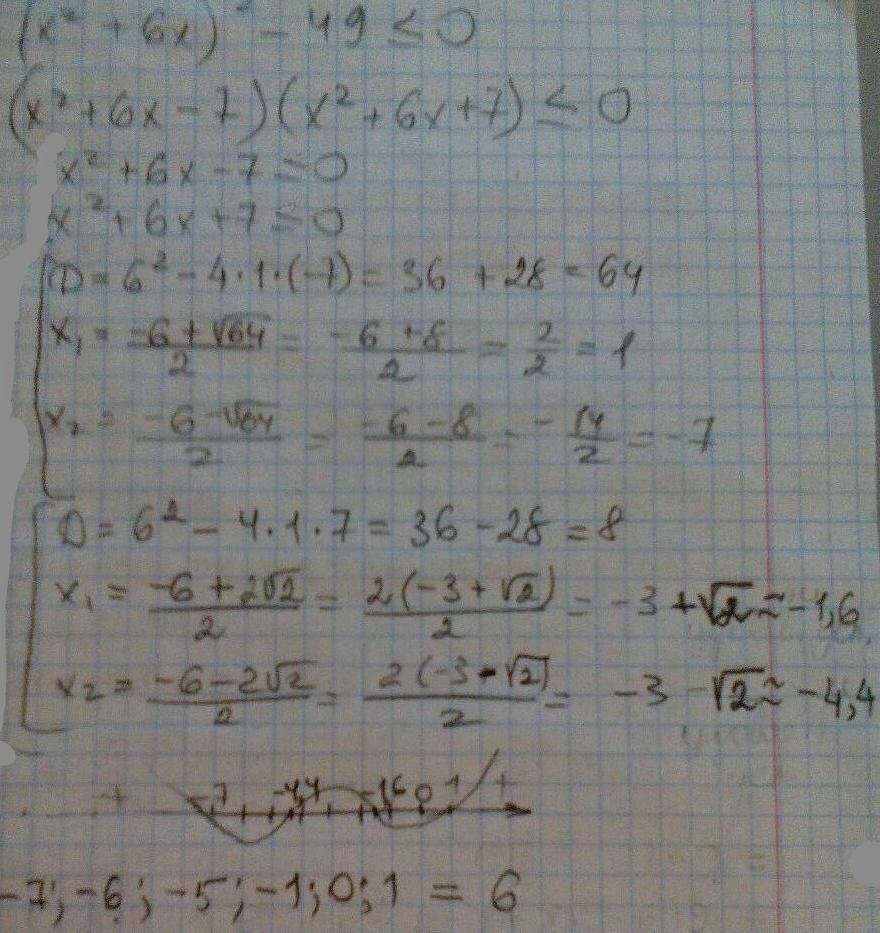 (x² + 6x)² - 49 ≤ 0
(x² + 6x - 7)(x² + 6x + 7) ≤ 0
x² + 6x - 7 ≤ 0
x² + 6x + 7 ≤ 0
D = 6² - 4·1·(-7) = 36 + 28 = 64
x₁ = (-6 + √64)/2 = (-6 + 8)/2 = 2/2 = 1
x₂ = (-6 - √64)/2 = (-6 - 8)/2 = -14/2 = -7
D = 6² - 4·1·7 = 36 - 28 = 8
x₁ = (-6 + 2√2)/2 = 2(-3 + √2)/2 = -3 + √2 ≈ -1,6
x₂ = (-6 - 2√2)/2 = 2(-3 - √2)/2 = -3 - √2 ≈ -4,4
+ -7 -4,4 -1,6 0 1 +
-7; -6; -5; -1; 0; 1 = 6